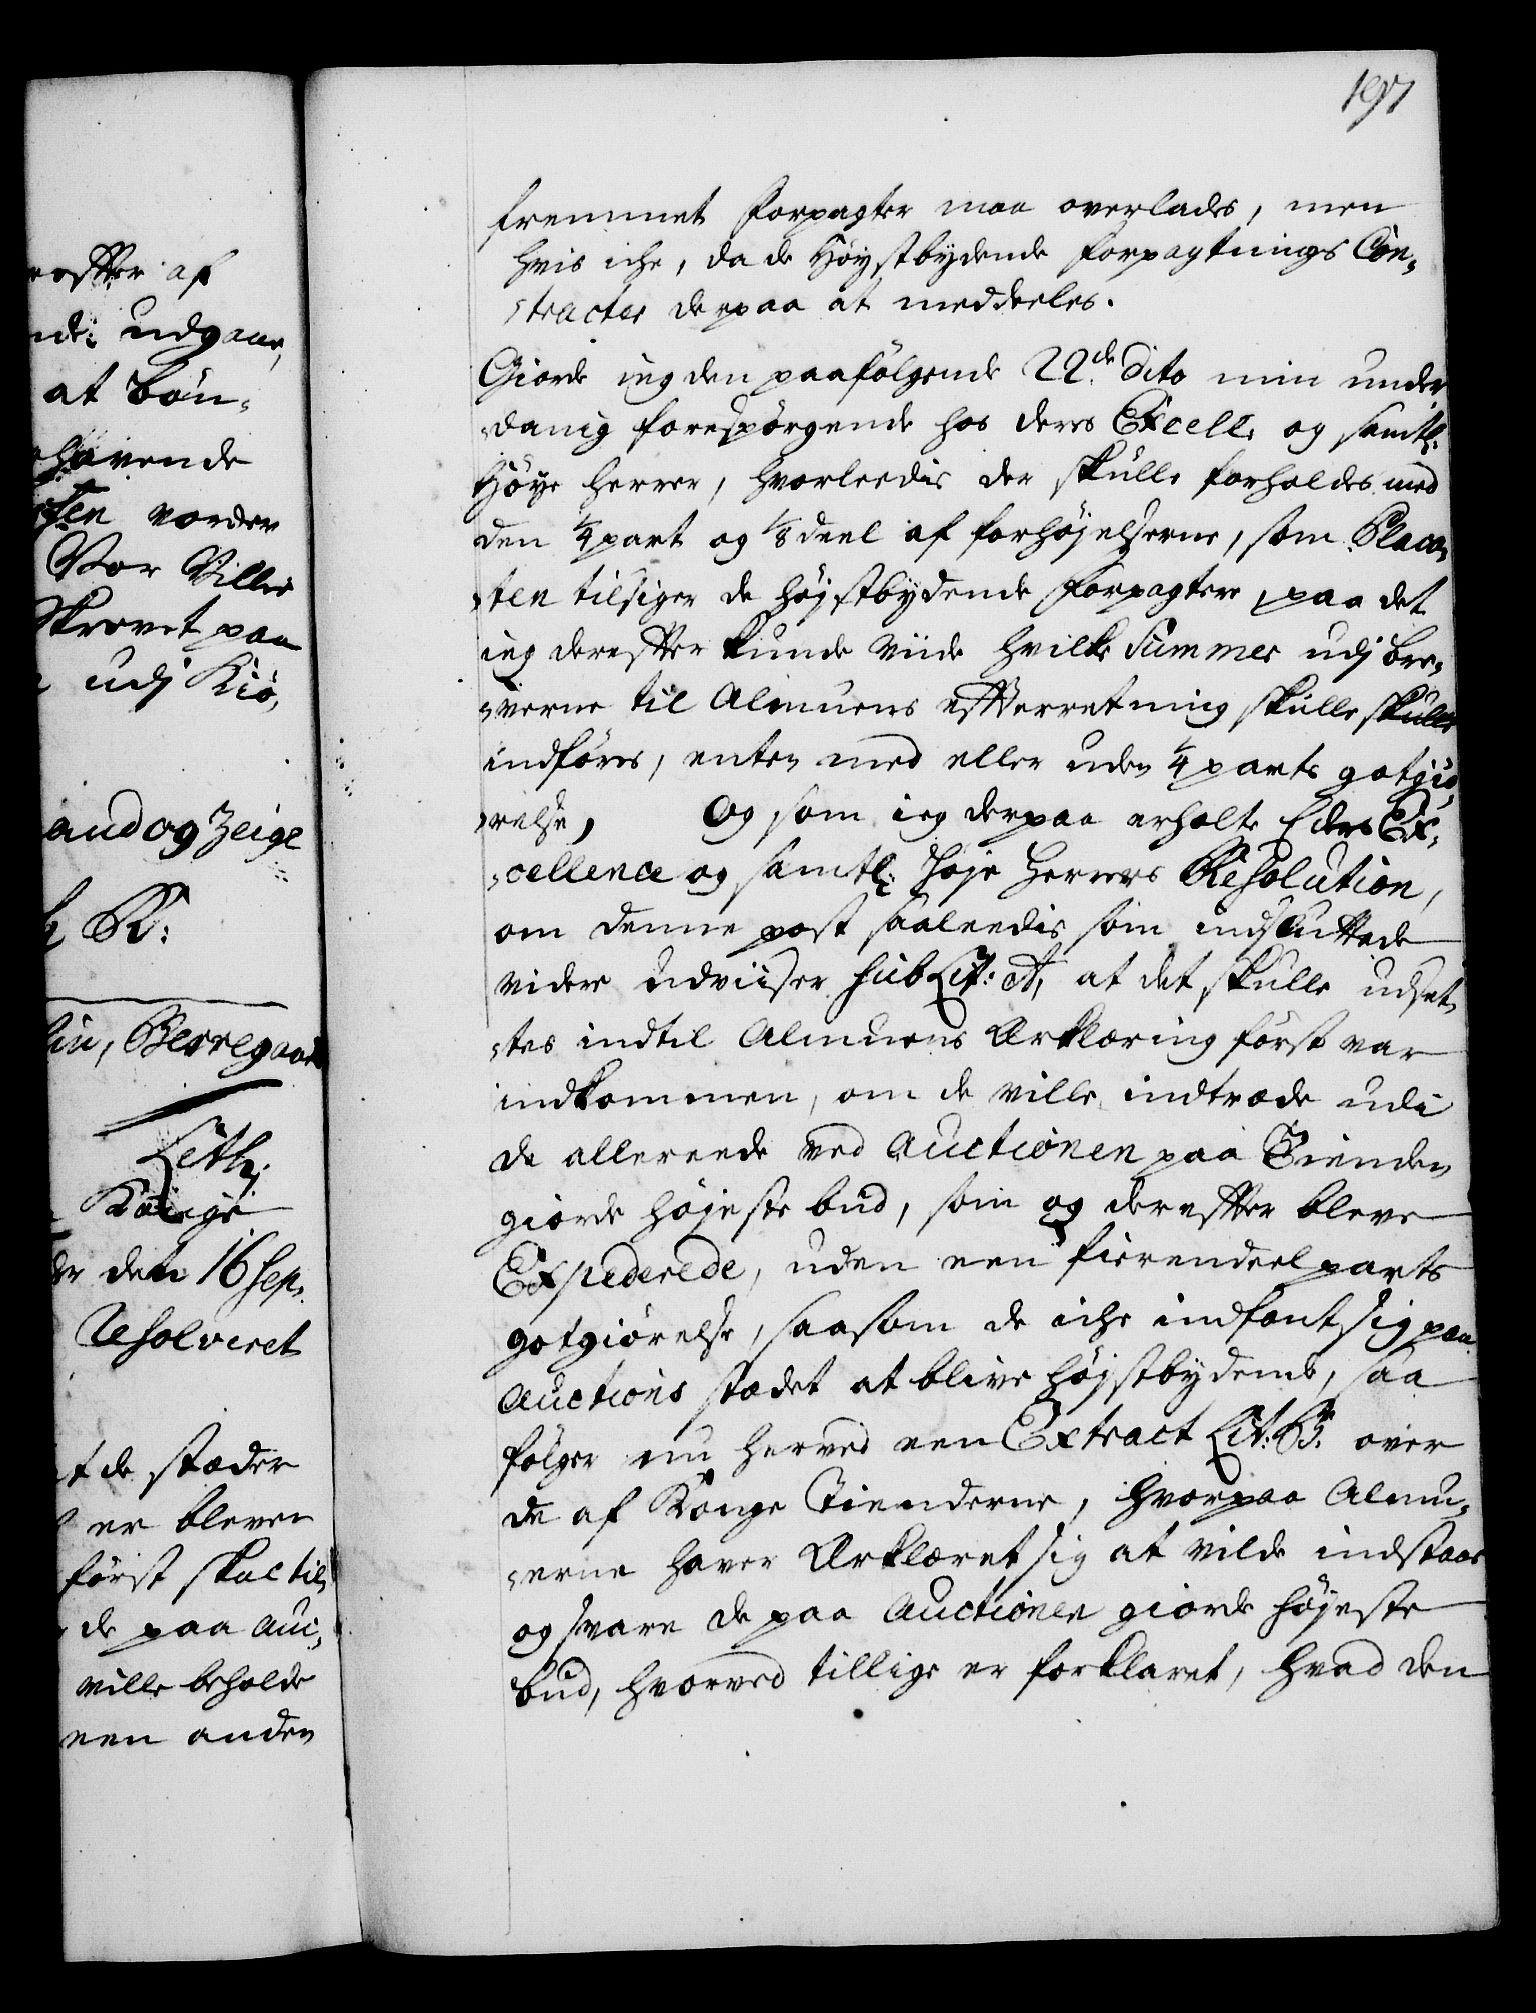 197
eftter af
nde: udgaae,
at bøn-
havende
ten vorder
Vor Villie
Skrevet paa
udj Kiø,
aud og Zeige
R:
lin, Berregaard
Lith;
Konge
den 16 Sep.
Resolveret
t de stæder
er bleven
först skal til,
de paa Auc,
ville beholde
een anden
fremmet Forpagter maa overlades, men
hvis iche, da de Höystbydende Forpagtnings Con,
tracter derpaa at meddeeles.
Giorde ieg den paafölgende 22de dito min under
danig forespörgende hos deres Excell. og samtl:
Höye Herrer, hvorleedis der skulle forholdes med
den 1/4 part og 1/8 deel af forhöjelserne, som Placa,
ten tilsiger de höjstbydende Forpagtere, paa det
ieg derefter kunde viide hvilke Summer udj bre,
verne til Almuens efterretning skulle skulle
indföres, enten med eller uden 1/4 parts gotgiö,
relse, Og som ieg derpaa erholte Eders Ex,
cellence og samtl: Höje Herrers Resolution,
om denne post saaleedis som indsluttede
videre udviiser sub Lit: A, at det skulle udset,
tes indtil Almuens Erklæring först var
indkommen, om de ville indtræde udi
de allereede ved Auctionen paa Tienden
giorde höjeste bud, som og derefter bleve
Expederede, uden een fierendeel parts
gotgiörelse, saasom de iche indfant sig paa
Auctions stædet at blive höjstbydende, saa
fölger nu herved een Extract Lit: B. over
de af Konge Tienderne, hvorpaa Almu,
erne haver Erklæret sig at vilde indstaae
og svare de paa Auctionen giorde höjeste
bud, hvorved tillige er forklaret, hvad den